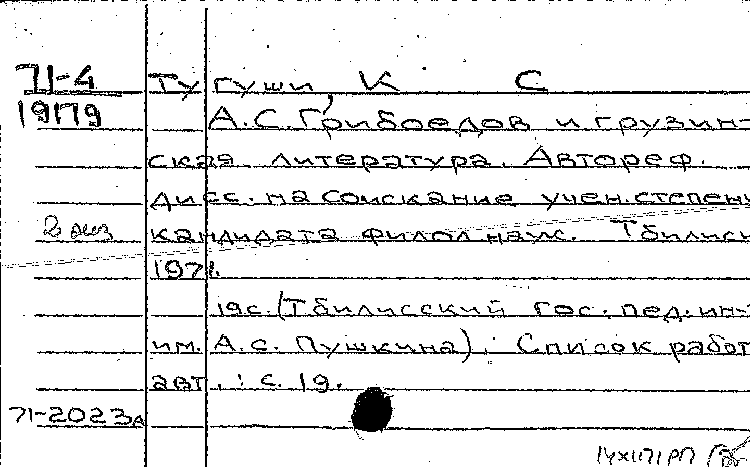 71-4 Тугуши, К С
19179 А.С. Грибоедов и грузин-
ская литература. Автореф.
дисс. на соискание учен. степени
2 экз кандидата филол. наук. Тбилиси
1971.
19с. (Тбилисский гос. пед. ин-
им. А.С. Пушкина). Список работ
авт.: с. 19.
71-2023а
14XII71РП